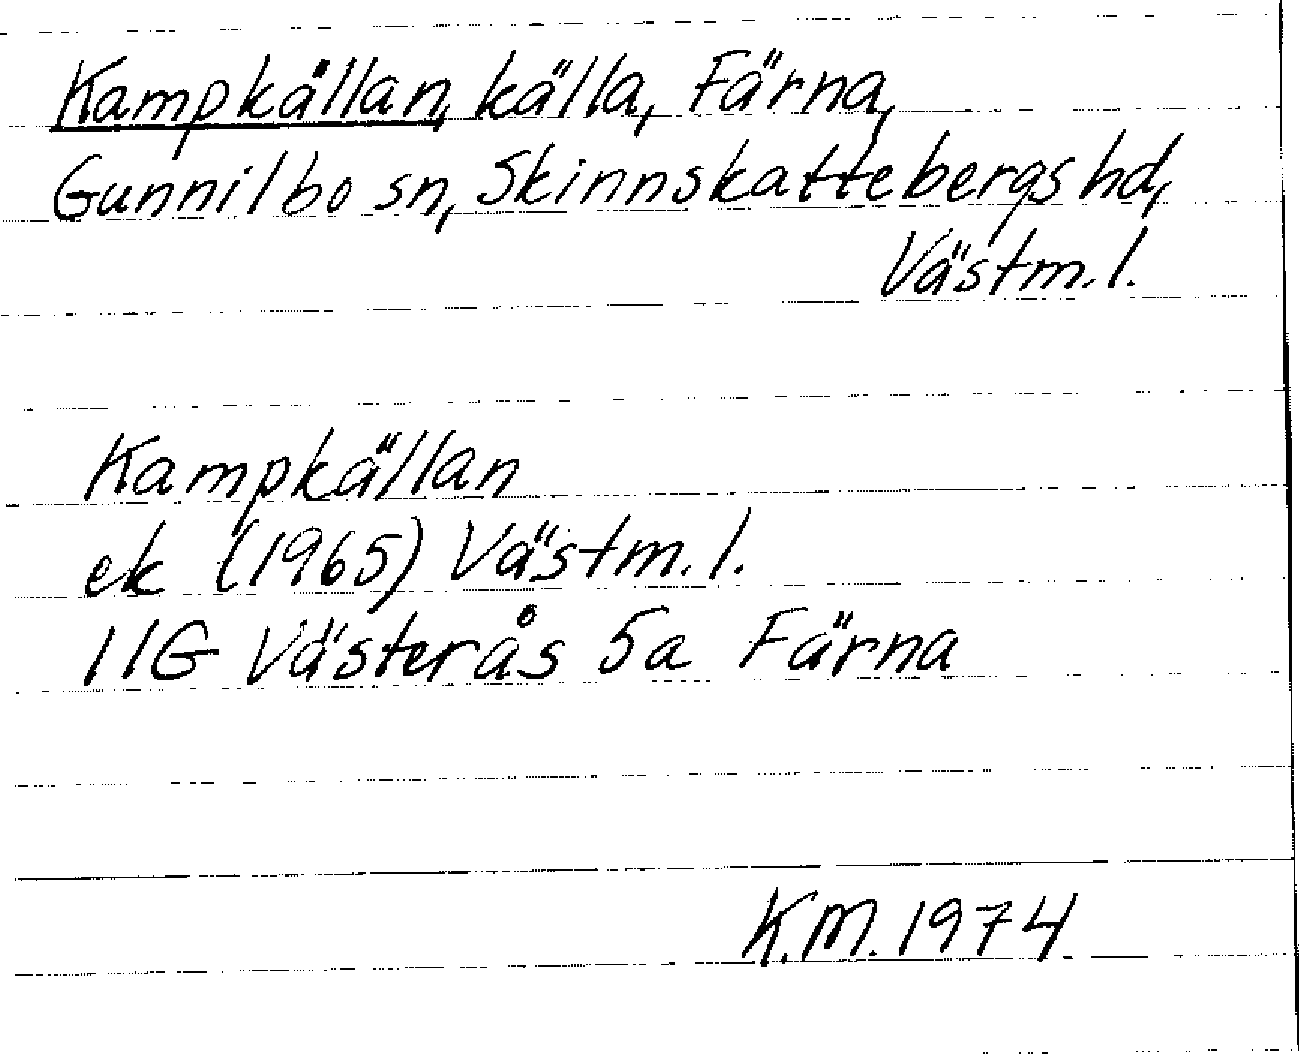 Kampkällan, källa, Färna,
Gunnilbo sn, Skinnskattebergs hd,
Västm. l.
Kampkällan
ek (1965) Västm. l.
11G Västerås 5a Färna
K.M. 1974